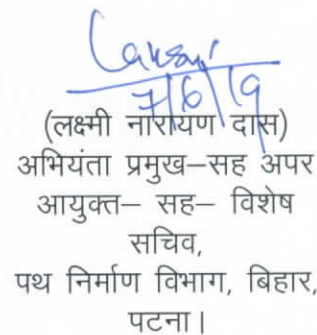 7/6/19
(लक्ष्मी नारायण दास)
अभियंता प्रमुख–सह अपर
आयुक्त– सह– विशेष
सचिव,
पथ निर्माण विभाग, बिहार,
पटना।